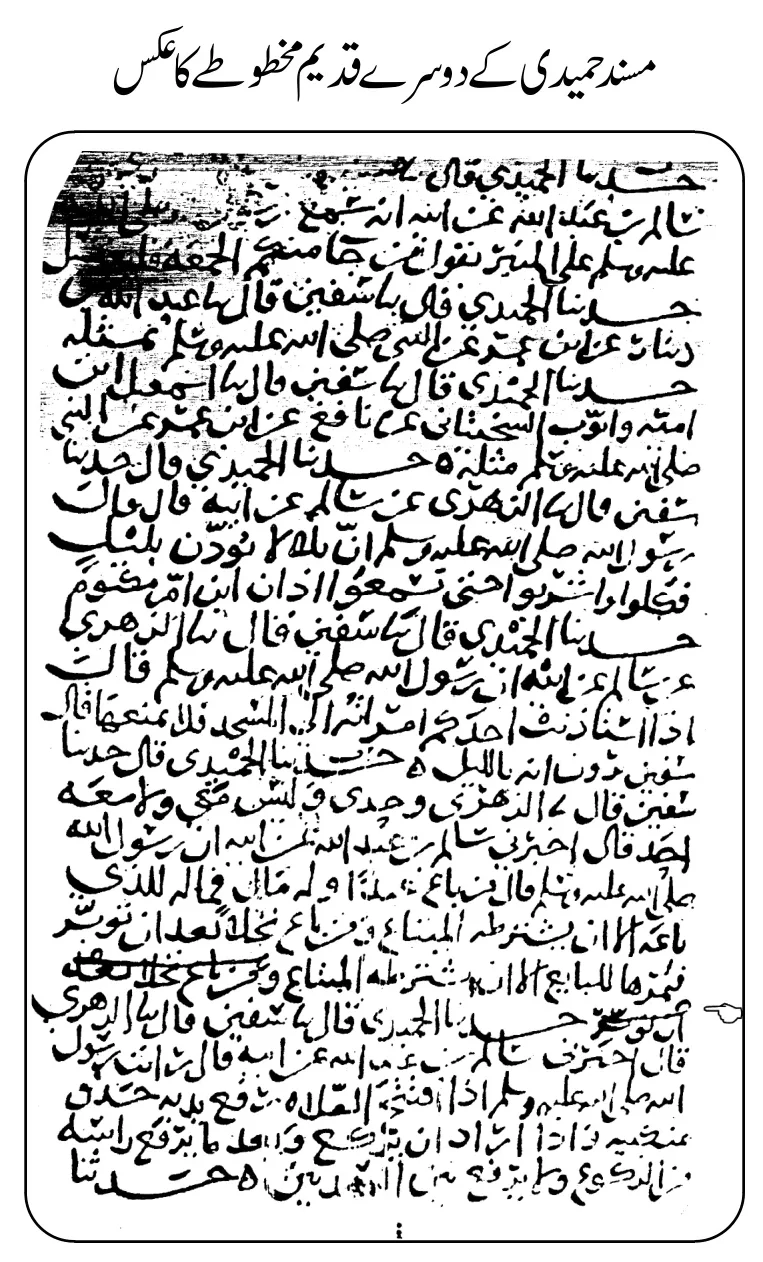 مسند حمیدی کے دوسرے قدیم مخطوطے کا عکس
حدثنا الحميدي قال
سالم بن عبد الله عن ابيه انه سمع رسول الله صلى الله
عليه وسلم على المنبر يقول من جا منكم الجمعة فليغتسل
حدثنا الحميدي قال ثنا سفين قال ثنا عبد الله بن
دينار عن ابن عمر عن النبي صلى الله عليه وسلم بمثله
حدثنا الحميدي قال ثنا سفين قال ثنا اسمعيل ابن
امية وايوب السختياني عن نافع عن ابن عمر عن النبي
صلى الله عليه وسلم مثله ه حدثنا الحميدي قال حدثنا
سفين قال ثنا الزهري عن سالم عن ابيه قال قال
رسول الله صلى الله عليه وسلم ان بلالا يوذن بليل
فكلوا واشربوا حتى تسمعوا اذان ابن ام مكتوم
حدثنا الحميدي قال ثنا سفين قال ثنا الزهري
عن سالم عن ابيه ان رسول الله صلى الله عليه وسلم قال
اذا استاذنت احدكم امراته الى المسجد فلا يمنعها قال
سفين يرون انه بالليل ه حدثنا الحميدي قال حدثنا
سفين قال ثنا الزهري وحدي وليس معي ولا معه
احد قال اخبرني سالم بن عبد الله عن ابيه ان رسول الله
صلى الله عليه وسلم قال من باع عبدا وله مال فماله للذي
باعه الا ان يشترطه المبتاع ومن باع نخلا بعد ان توبر
فثمرها للبايع الا ان يشترطه المبتاع ومن باع نخلا بعد
ان توبر حدثنا الحميدي قال ثنا سفين قال ثنا الزهري
قال اخبرني سالم بن عبد الله عن ابيه قال رايت رسول
الله صلى الله عليه وسلم اذا افتتح الصلاة رفع يديه حذو
منكبيه واذا اراد ان يركع وبعد ما يرفع راسه
من الركوع ولا يرفع بين السجدتين ه حدثنا